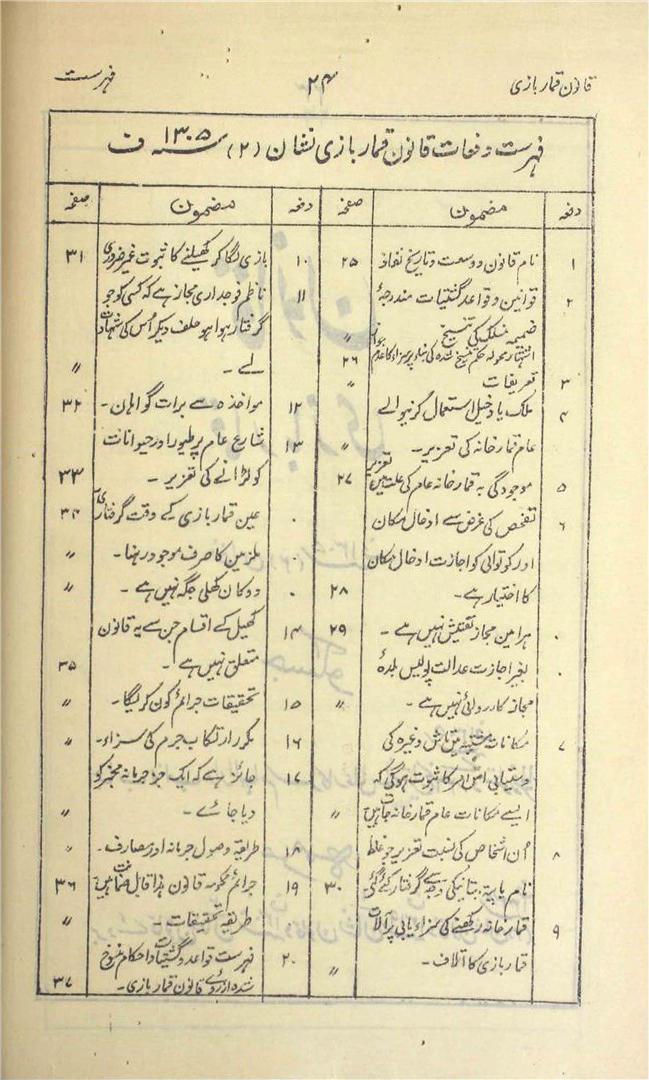 قانون قمار بازی ۲۴ فہرست
فہرست دفعات قانون قمار بازی نشان (۲) ۱۳۰۵ ف
دفعہ مضمون صفحہ
۱ نام قانون و وسعت و تاریخ نفاذ ۲۵
۲ قوانین و قواعد گشتیات مندرجۂ
ضمیمہ منسلک کی تنسیخ ״
اشتہار محولہ حکم تنسیخ شدہ کی بناء پر سزاء کا عدم جواز ۲۶
۳ تعریفات ״
۴ ملک یا دخیل استعمال کرنیوالے
عام قمار خانہ کی تعزیر۔ ״
۵ موجودگی بہ قمار خانہ عام کی علت میں تعزیر ۲۷
۶ تفحص کی غرض سے ادخال مکان
اور کوتوالی کو اجازت ادخال مکان
کا اختیار ہے۔ ۲۸
۰ ہر امین مجاز تفتیش نہیں ہے۔ ۲۹
۰ بغیر اجازت عدالت پولیس بلدۂ
مجاز کارروائی نہیں ہے۔ ״
۷ مکانات مشتبہ میں تاش وغیرہ کی
دستیابی اس امر کا ثبوت ہوگی کہ
ایسے مکانات عام قمار خانہ جات ہیں ״
۸ اُن اشخاص کی نسبت تعزیر جو غلط
نام یا پتہ بتانیکی وجہ سے گرفتار کئے گئے۔ ۳۰
۹ قمار خانہ رکھنے کی سزاء یابی پر آلات
قمار بازی کا اتلاف۔ ״
دفعہ مضمون صفحہ
۱۰ بازی لگا کر کھیلنے کا ثبوت غیر ضروری ۳۱
۱۱ ناظم فوجداری مجاز ہے کہ کسی کو جو
گرفتار ہوا ہو حلف دیکر اُس کی شہادت
لے۔ ״
۱۲ مواخذہ سے برات گواہان۔ ۳۲
۱۳ شارع عام پر طیور اور حیوانات
کو لڑانے کی تعزیر۔ ۳۳
۰ عین قمار بازی کے وقت گرفتاری ۳۴
۰ ملزمین کا صرف موجود رہنا۔ ״
۰ دوکان کھلی جگہ نہیں ہے۔ ״
۱۴ کھیل کے اقسام جن سے یہ قانون
متعلق نہیں ہے۔ ۳۵
۱۵ تحقیقات جرائم کون کریگا۔ ״
۱۶ مکرر ارتکاب جرم کی سزاء۔ ״
۱۷ جائز ہے کہ ایک جز جرمانہ مخبر کو
دیا جائے۔ ״
۱۸ طریقہ وصول جرمانہ اور مصارف۔ ״
۱۹ جرائم محکومہ قانون ہذا قابل ضمانت ہیں ۳۶
۰ طریقہ تحقیقات۔ ״
۲۰ فہرست قواعد و گشتیات و احکام منسوخ
شدہ از روئے قانون قمار بازی۔ ۳۷